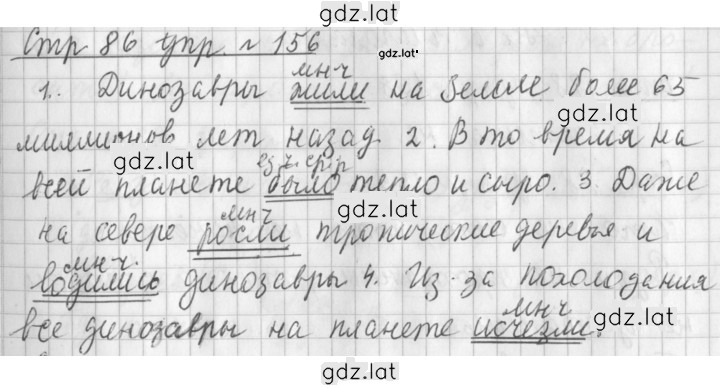 gdz.lat
Стр 86 упр. № 156
gdz.lat
мн ч
1. Динозавры жили на Земле более 65
gdz.lat
миллионов лет назад 2. В то время на
gdz.lat
ед.ч. ср.р
всей планете было тепло и сыро. 3. Даже
gdz.lat
мн ч
на севере росли тропические деревья и
gdz.lat
мн.ч.
водились динозавры 4. Из-за похолодания
мн ч
все динозавры на планете исчезли.
gdz.lat
gdz.lat